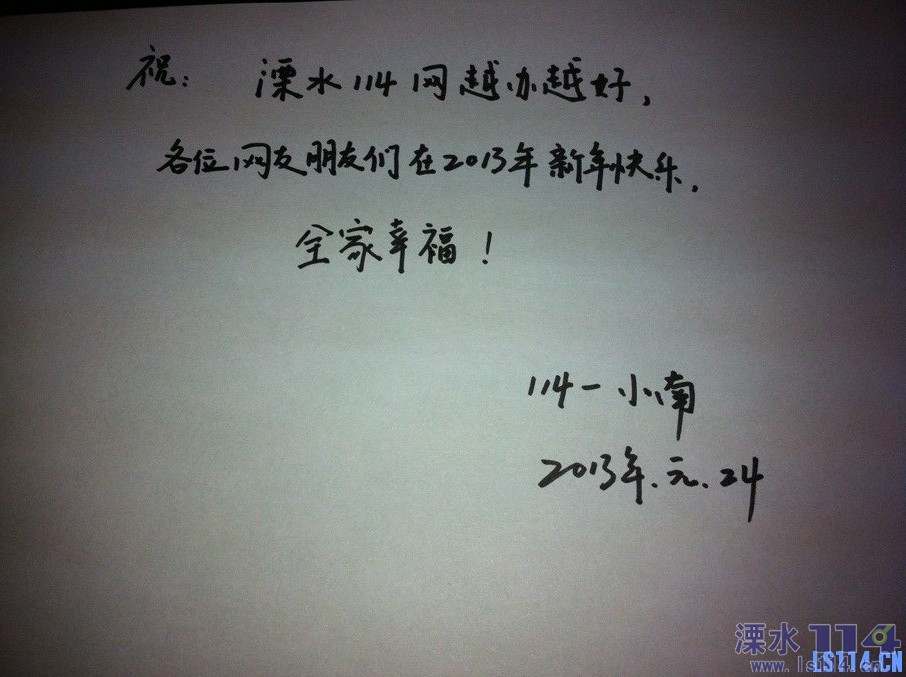 祝： 溧水114网越办越好，
各位网友朋友们在2013年新年快乐，
全家幸福！
114－小南
2013年.元.24
溧水114
www.ls114.cn
LS114.CN